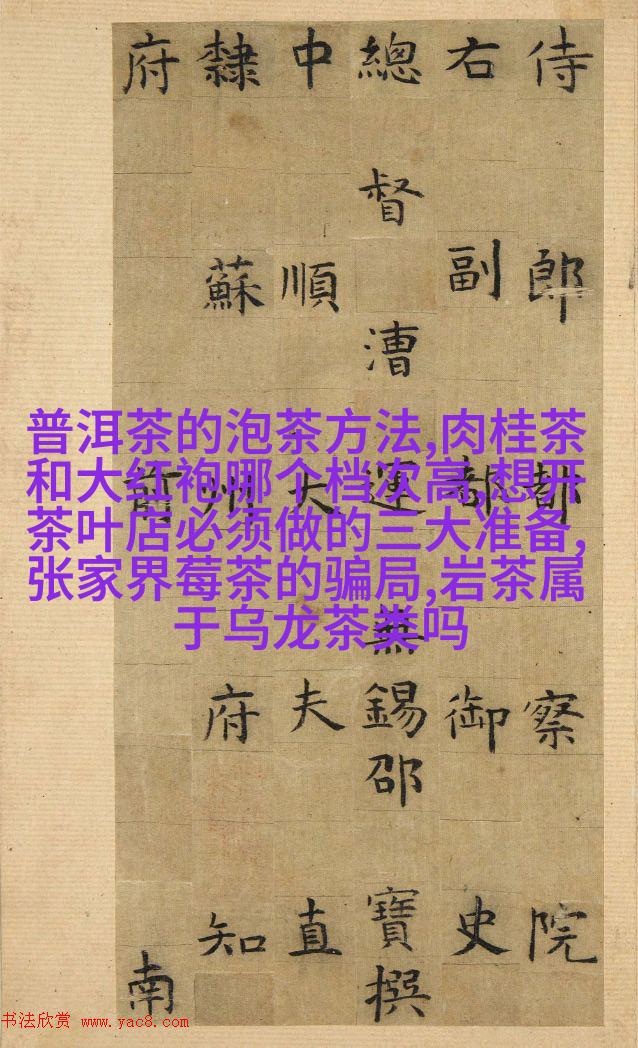 侍郎都察院
右副都御史
總督漕運無錫邵寶撰
中順大夫直
隸蘇州府知
府前南
普洱茶的泡茶方法,肉桂茶
和大红袍哪个档次高,想开
茶叶店必须做的三大准备,
张家界莓茶的骗局,岩茶属
于乌龙茶类吗
书法欣赏 www.yac8.com